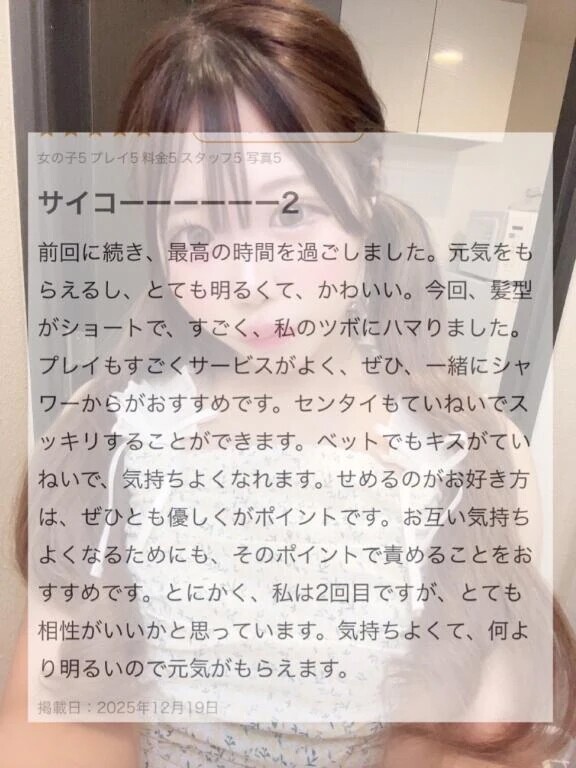 女の子5 プレイ5 料金5 スタッフ5 写真5
サイコーーーーーーー2
前回に続き、最高の時間を過ごしました。元気をも
らえるし、とても明るくて、かわいい。今回、髪型
がショートで、すごく、私のツボにハマりました。
プレイもすごくサービスがよく、ぜひ、一緒にシャ
ワーからがおすすめです。センタイもていねいでス
ッキリすることができます。ベットでもキスがてい
ねいで、気持ちよくなれます。せめるのがお好き方
は、ぜひとも優しくがポイントです。お互い気持ち
よくなるためにも、そのポイントで責めることをお
すすめです。とにかく、私は2回目ですが、とても
相性がいいかと思っています。気持ちよくて、何よ
り明るいので元気がもらえます。
掲載日：2025年12月19日